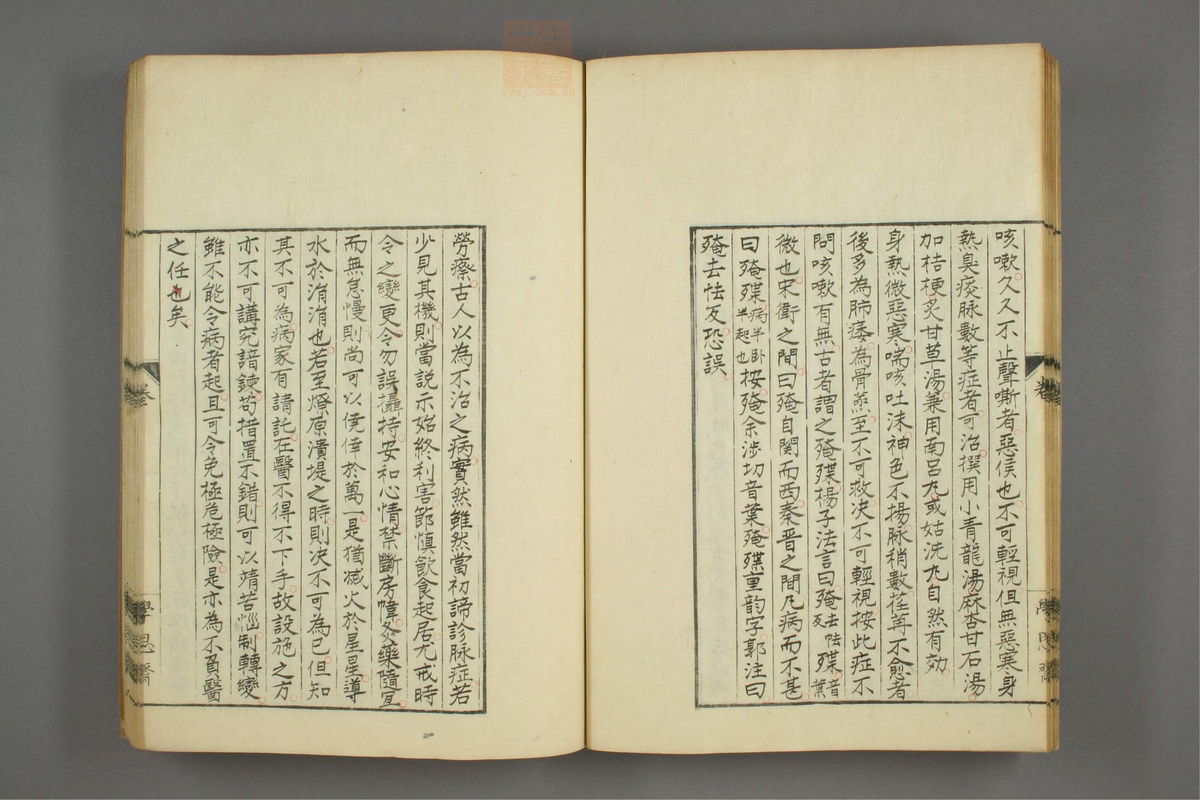 咳嗽久久不止聲嘶者惡候也不可輕視但無惡寒身
熱臭痰脉數等症者可治撰用小青龍湯麻杏甘石湯
加桔梗炙甘草湯兼用南呂丸或姑洗丸自然有効
身熱微惡寒喘咳吐沫神色不揚脉稍數荏苒不愈者
後多為肺痿為骨蒸至不可救决不可輕視按此症不
問咳嗽有無古者謂之殗殜楊子法言曰殗去怯反殜音葉
微也宋衛之間曰殗自関而西秦晋之間凡病而不甚
曰殗殜病半卧半起也按殗余涉切音葉殗殜重韵字郭注曰
殗去怯反恐誤
勞瘵古人以為不治之病實然雖然當初諦診脉症若
少見其機則當説示始終利害節慎飲食起居尤戒時
令之變更令勿誤攝持安和心情禁斷房幃灸藥隨宜
而無怠慢則尚可以僥倖於萬一是猶减火於星星導
水於涓涓也若至燎原潰堤之時則决不可為已但知
其不可為病家有請託在醫不得不下手故設施之方
亦不可講究諳鍊苟措置不錯則可以靖苦惱制轉變
雖不能令病者起且可令免極危極險是亦為不負醫
之任也矣
卷
學思齋
卷
學思齋